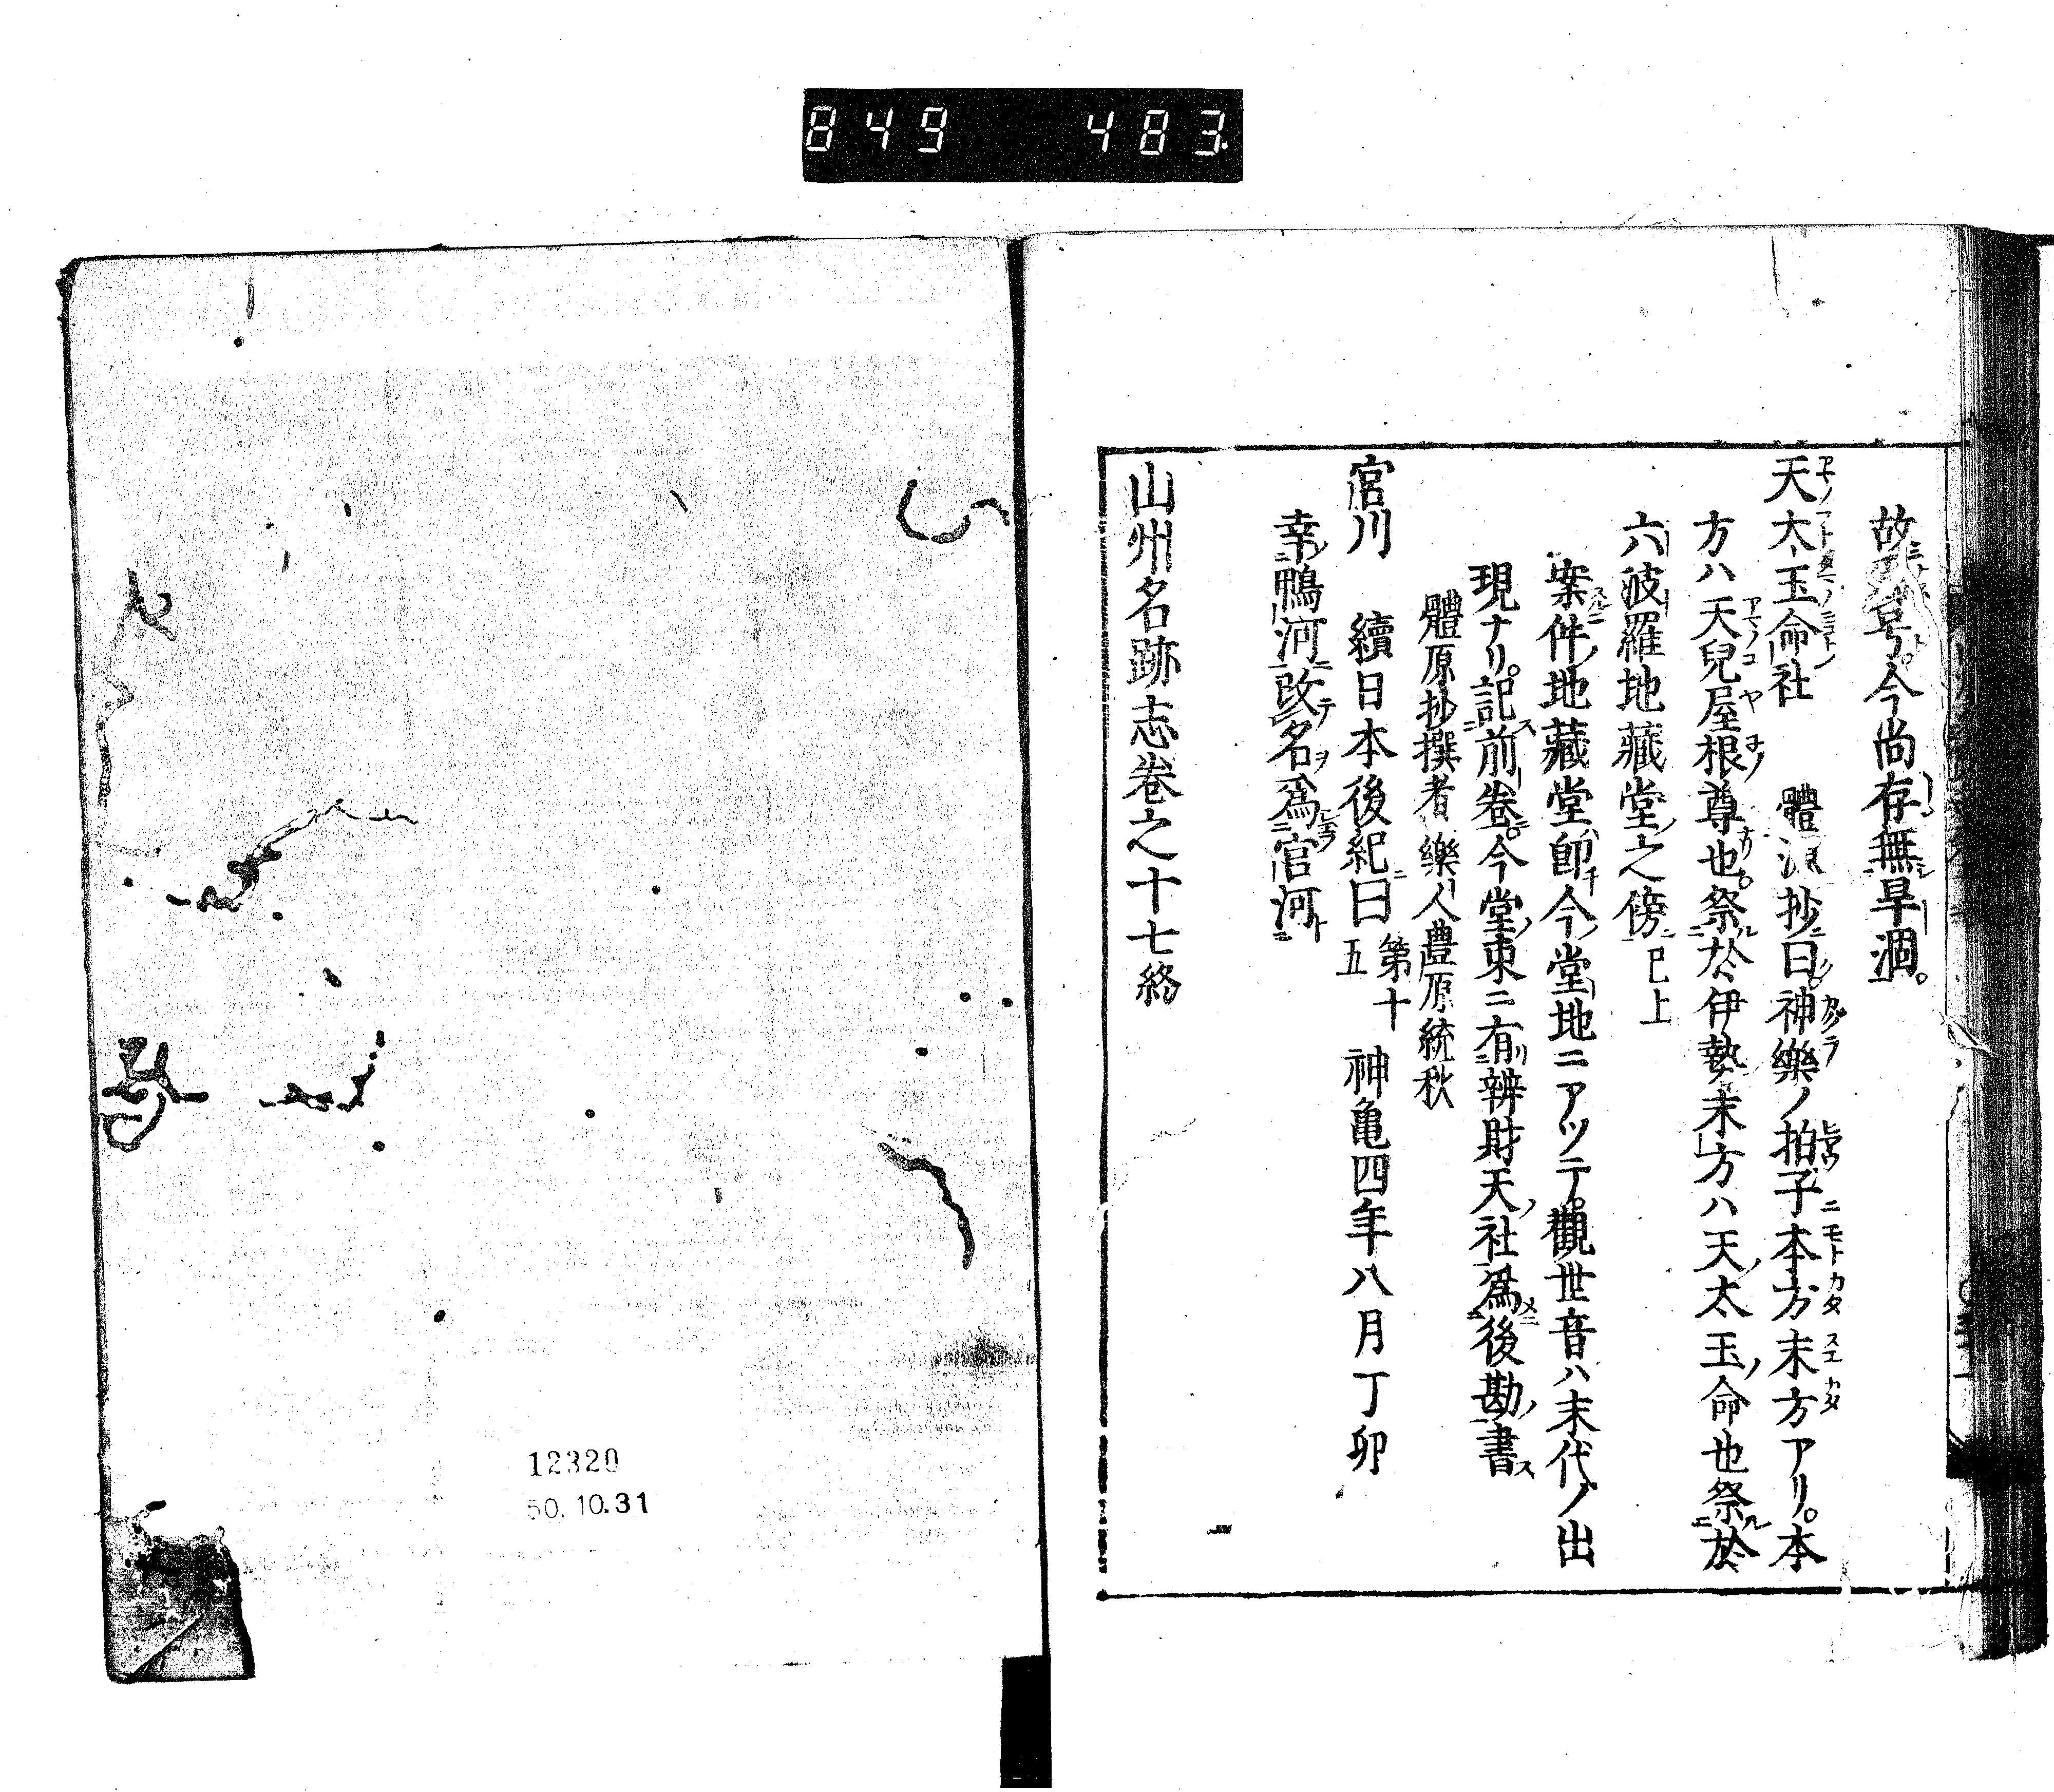 849 483
故号今尚存無旱涸。
天太玉命社 體源抄曰神樂ノ拍子本方末方アリ。本
方ハ天兒屋根尊也。祭於伊勢末方ハ天太玉命也祭於
六波羅地藏堂之傍已上
案件地藏堂卽今堂地ニアツテ觀世音ハ末代ノ出
現ナリ。記前卷。今堂東ニ有辨財天社爲後勘書
體原抄撰者樂人豊原統秋
宮川 續日本後紀曰第十五 神亀四年八月丁卯
幸鴨河改名爲宮河
山州名跡志巻之十七終
12320
50.10.31